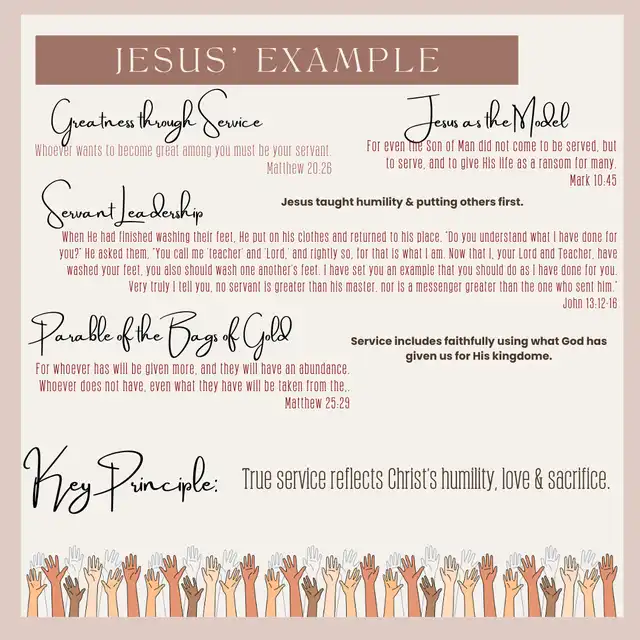 JESUS' EXAMPLE
Greatness through Service
Whoever wants to become great among you must be your servant.
Matthew 20:26
Jesus as the Model
For even the Son of Man did not come to be served, but
to serve, and to give His life as a ransom for many.
Mark 10:45
Servant Leadership
Jesus taught humility & putting others first.
When He had finished washing their feet, He put on his clothes and returned to his place. "Do you understand what I have done for
you?" He asked them. "You call me 'teacher' and 'Lord,' and rightly so, for that is what I am. Now that I, your Lord and Teacher, have
washed your feet, you also should wash one another's feet. I have set you an example that you should do as I have done for you.
Very truly I tell you, no servant is greater than his master, nor is a messenger greater than the one who sent him."
John 13:12-16
Parable of the Bags of Gold
For whoever has will be given more, and they will have an abundance.
Whoever does not have, even what they have will be taken from the,.
Matthew 25:29
Service includes faithfully using what God has
given us for His kingdome.
Key Principle:
True service reflects Christ's humility, love & sacrifice.